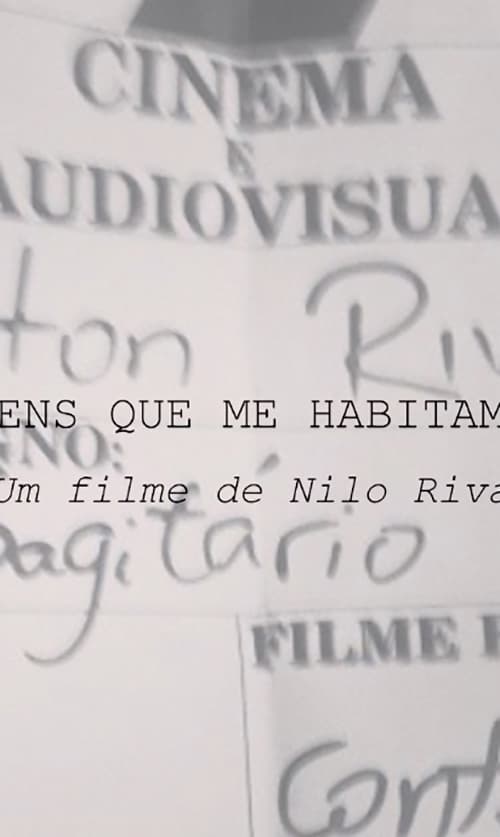 CINEMA
E
AUDIOVISUA
ton Riv
ENS QUE ME HABITAM
GNO:
Um filme de Nilo Riva
Sagitário
FILME
Cont